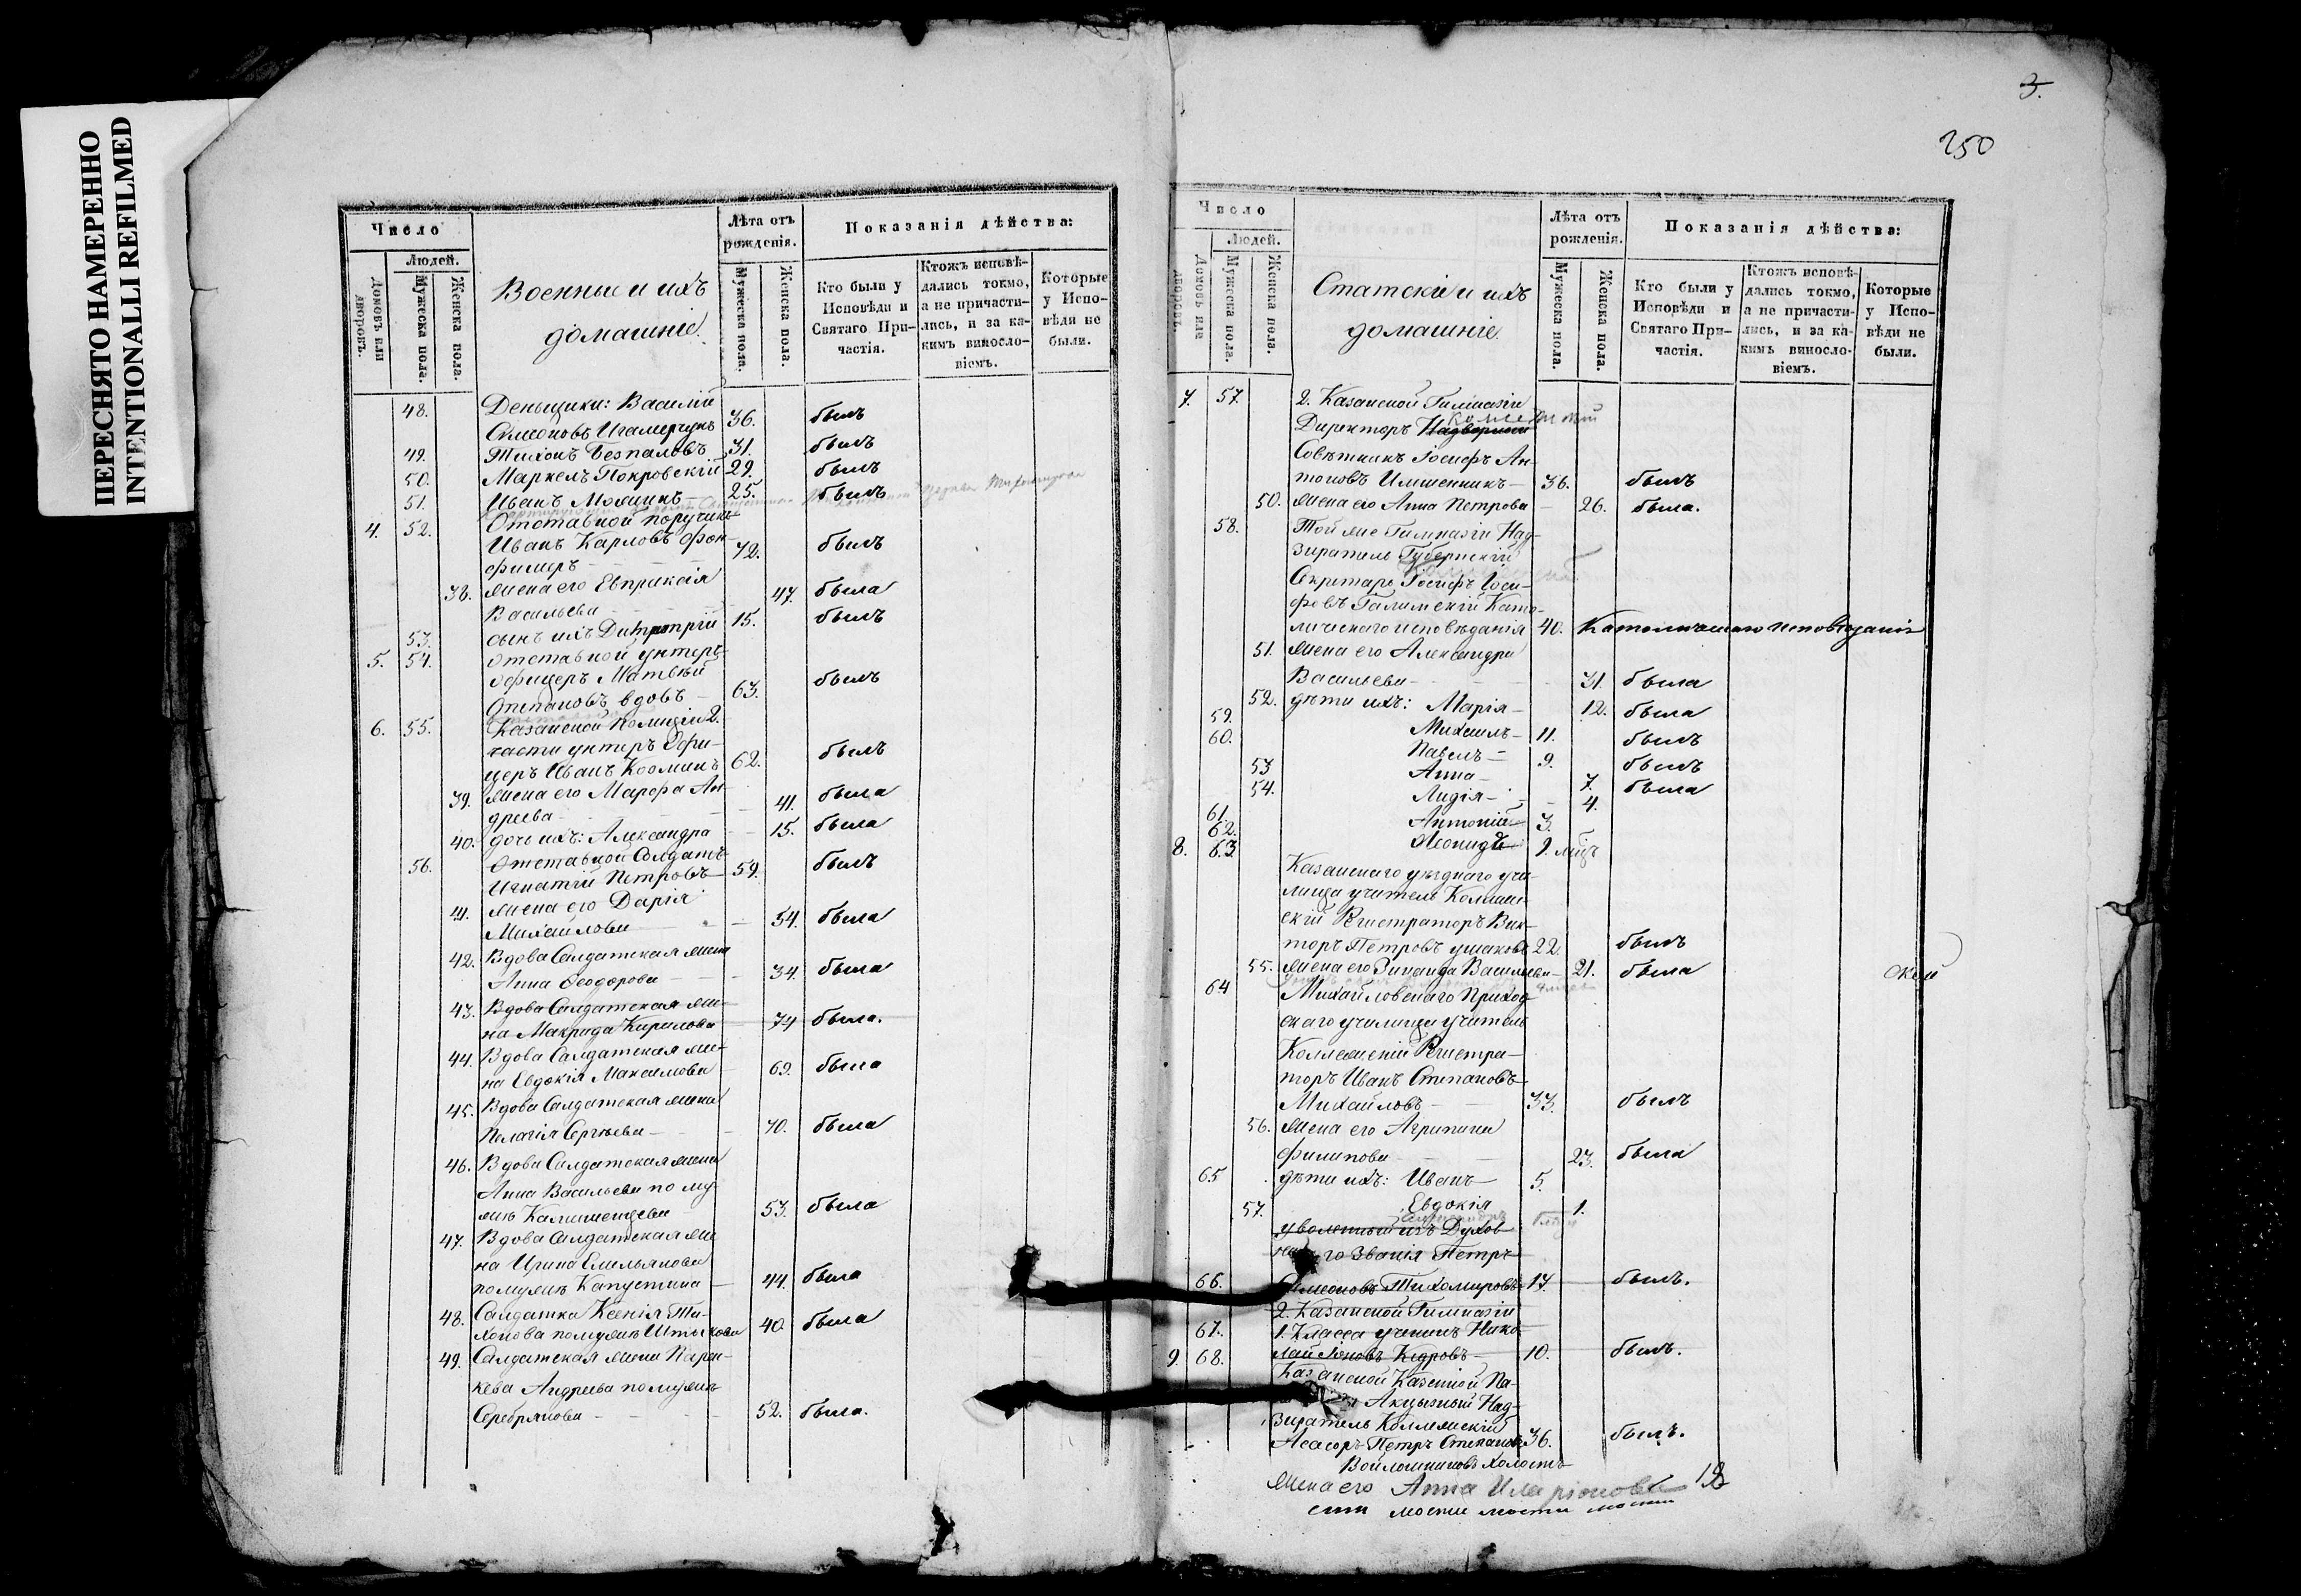 ПЕРЕСНЯТО НАМЕРЕННО
INTENTIONALLI REFILMED
3.
250
Число
Людей.
Домовъ или дворовъ.
Мужеска пола.
Женска пола.
Военные и ихъ
домашніе.
Лѣта отъ рожденія.
Мужеска пола.
Женска пола.
Показанія дѣйства:
Кто были у Исповѣди и Святаго Причастія.
Ктожъ исповѣдались токмо, а не причастились, и за какимъ винословіемъ.
Которые у Исповѣди не были.
48. Деньщики: Василій
Симеоновъ 36. былъ
49. Тихонъ Безпаловъ 31. былъ
50. Маркелъ Покровскій 29. былъ
51. Иванъ 25. былъ
4. 52. Отставной поручикъ
Иванъ Карловъ фон-
72. былъ
38. жена его Евпраксія
Васильева 47. была
53. сынъ ихъ Димитрій 15. былъ
5. 54. отставной унтеръ-
офицеръ Матвѣй
Степановъ вдовъ 63. былъ
6. 55. Казанской Полиціи 2.
части унтеръ Офи-
церъ Иванъ 62. былъ
39. жена его Марфа Ан-
дреева 41. была
40. дочь ихъ: Александра 15. была
56. Отставной Солдатъ
Игнатій Петровъ 59. былъ
41. жена его Дарія
Михайлова 54. была
42. Вдова Салдатская жена
Анна Ѳеодорова 34. была
43. Вдова Салдатская же-
на Макрида Кирилова 74 была.
44. Вдова Салдатская же-
на Евдокія Максимова 69. была
45. Вдова Салдатская жена
Пелагія Сергѣева 70. была
46. Вдова Салдатская жена
Анна Васильева по му-
жѣ 53. была
47. Вдова Салдатская же
на Ирина Емельянова
по мужѣ Капустина 44. была
48. Салдатка Ксенія Ти-
хонова по мужѣ Штыкова 40. была
49. Салдатская жена Парас-
кева Андреева по мужѣ
Серебрякова 52. была.
Число
Людей.
Домовъ или дворовъ.
Мужеска пола.
Женска пола.
Статскіе и ихъ
домашніе.
Лѣта отъ рожденія.
Мужеска пола.
Женска пола.
Показанія дѣйства:
Кто были у Исповѣди и Святаго Причастія.
Ктожъ исповѣдались токмо, а не причастились, и за какимъ винословіемъ.
Которые у Исповѣди не были.
7. 57. 2. Казанской Гимназіи
Директоръ Надворный
Совѣтникъ Іосифъ Ан-
тоновъ 36. былъ
50. жена его Анна Петрова 26. была.
58. Той же Гимназіи Над-
зиратель Губернскій
Секретарь Іосифъ Іоси-
фовъ Католи-
ческаго исповѣданія 40. Католическаго исповѣданія
51. жена его Александра
Васильева 31. была
52. дѣти ихъ: Марія 12. была
59. Михаилъ 11. былъ
60. Павелъ 9. былъ
53 Анна 7. была
54. Лидія 4.
61. Антоній 3.
62. Леонидъ 9. мѣс
8. 63. Казанскаго уѣзднаго учи-
лища учитель Коллеж-
скій Регистраторъ Вик-
торъ Петровъ Ушаковъ 22. былъ
55. жена его Зинаида Васильева 21. была
ской
64 Михайловскаго Приход-
скаго училища учитель
Коллежскій Регистра-
торъ Иванъ Степановъ
Михайловъ 33. былъ
56. жена его Агрипина
Филипова 23. была
65 дѣти ихъ: Иванъ 5.
57. Евдокія 1.
уволенный изъ Духов
наго Званія Петръ
66. Симеоновъ Тихомировъ 17. былъ.
2. Казанской Гимназіи
67. 1. Класса ученикъ Нико-
лай Кедровъ 10. былъ.
9. 68. Казанской Казенной Па-
Акцызный Над-
зиратель Коллежскій
Асесоръ Петръ Степановъ 36. былъ.
холостъ
жена его Анна Иларіонова 18